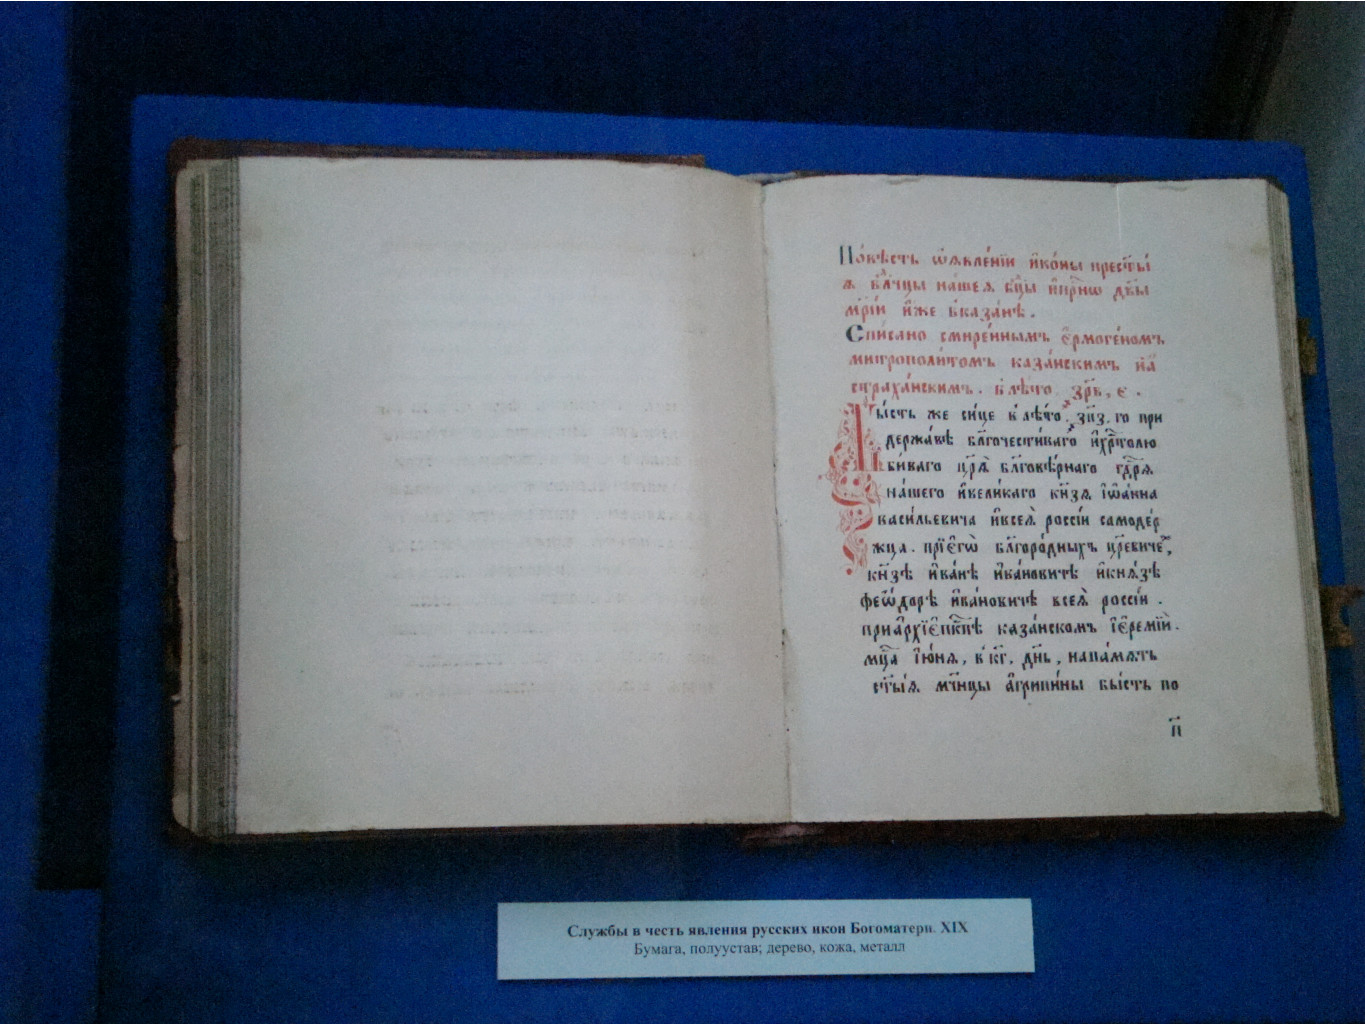 Повѣсть ѡ҆ꙗвле́нїи и҆ко́ны прест҃ы́
ѧ вл҃чцы на́шеѧ бц҃ы и҆прн҃ѡ дв҃ы
мр҃і́и и҆́же вказа́нѣ.
Спи́сано смире́ннымъ є҆рмоге́номъ
митрополи́томъ каза́нскимъ и҆а҆
страха́нскимъ. влѣ́то. зр҃в, є.
Бы́сть же си́це влѣ́то. зп҃з. го при
держа́вѣ бл҃гочести́ваго и҆хр҃толю
би́ваго цр҃ѧ̀ бл҃говѣ́рнаго гд҃рѧ
на́шего и҆вели́каго кн҃зѧ і҆ѡа́нна
васи́льевича и҆всеѧ̀ росси́и самоде́р
жца. прїє҆гѡ̀ бл҃горо́дныхъ цр҃евиче,
кн҃зѣ и҆ва́нѣ и҆ва́новитѣ и҆кнѧ́зѣ
фео́дорѣ и҆ва́новичѣ всеѧ̀ росси́и.
приа҆рхїє҆пк҃пѣ каза́нскомъ і҆єремі́и.
мц҃а і҆ю́нѧ, в к҃г, дн҃ь, напа́мѧть
ст҃ы́ѧ мч҃нцы а҆грипи́ны бы́сть по
п҃
Службы в честь явления русских икон Богоматери. XIX
Бумага, полуустав; дерево, кожа, металл